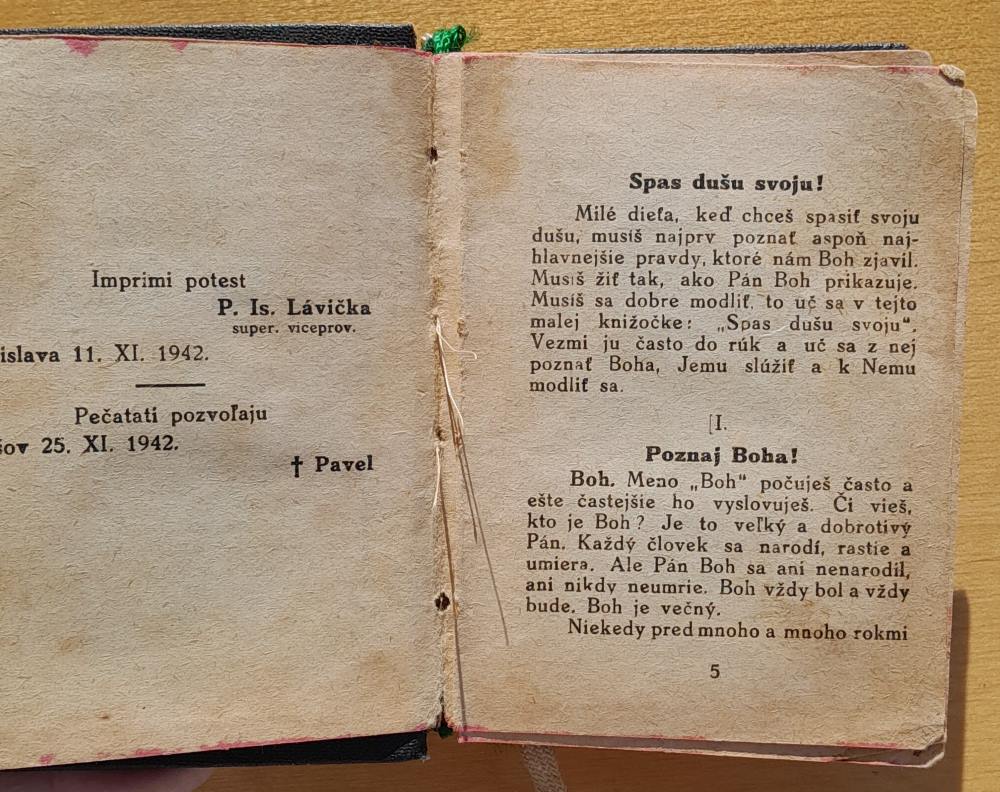 Imprimi potest
P. Is. Lávička
super. viceprov.
islava 11. XI. 1942.
Pečatati pozvoľaju
ov 25. XI. 1942.
† Pavel
Spas dušu svoju!
Milé dieťa, keď chceš spasiť svoju
dušu, musíš najprv poznať aspoň naj-
hlavnejšie pravdy, ktoré nám Boh zjavil.
Musíš žiť tak, ako Pán Boh prikazuje.
Musíš sa dobre modliť, to uč sa v tejto
malej knižočke: „Spas dušu svoju“.
Vezmi ju často do rúk a uč sa z nej
poznať Boha, Jemu slúžiť a k Nemu
modliť sa.
I.
Poznaj Boha!
Boh. Meno „Boh“ počuješ často a
ešte častejšie ho vyslovuješ. Či vieš,
kto je Boh? Je to veľký a dobrotivý
Pán. Každý človek sa narodí, rastie a
umiera. Ale Pán Boh sa ani nenarodil,
ani nikdy neumrie. Boh vždy bol a vždy
bude. Boh je večný.
Niekedy pred mnoho a mnoho rokmi
5